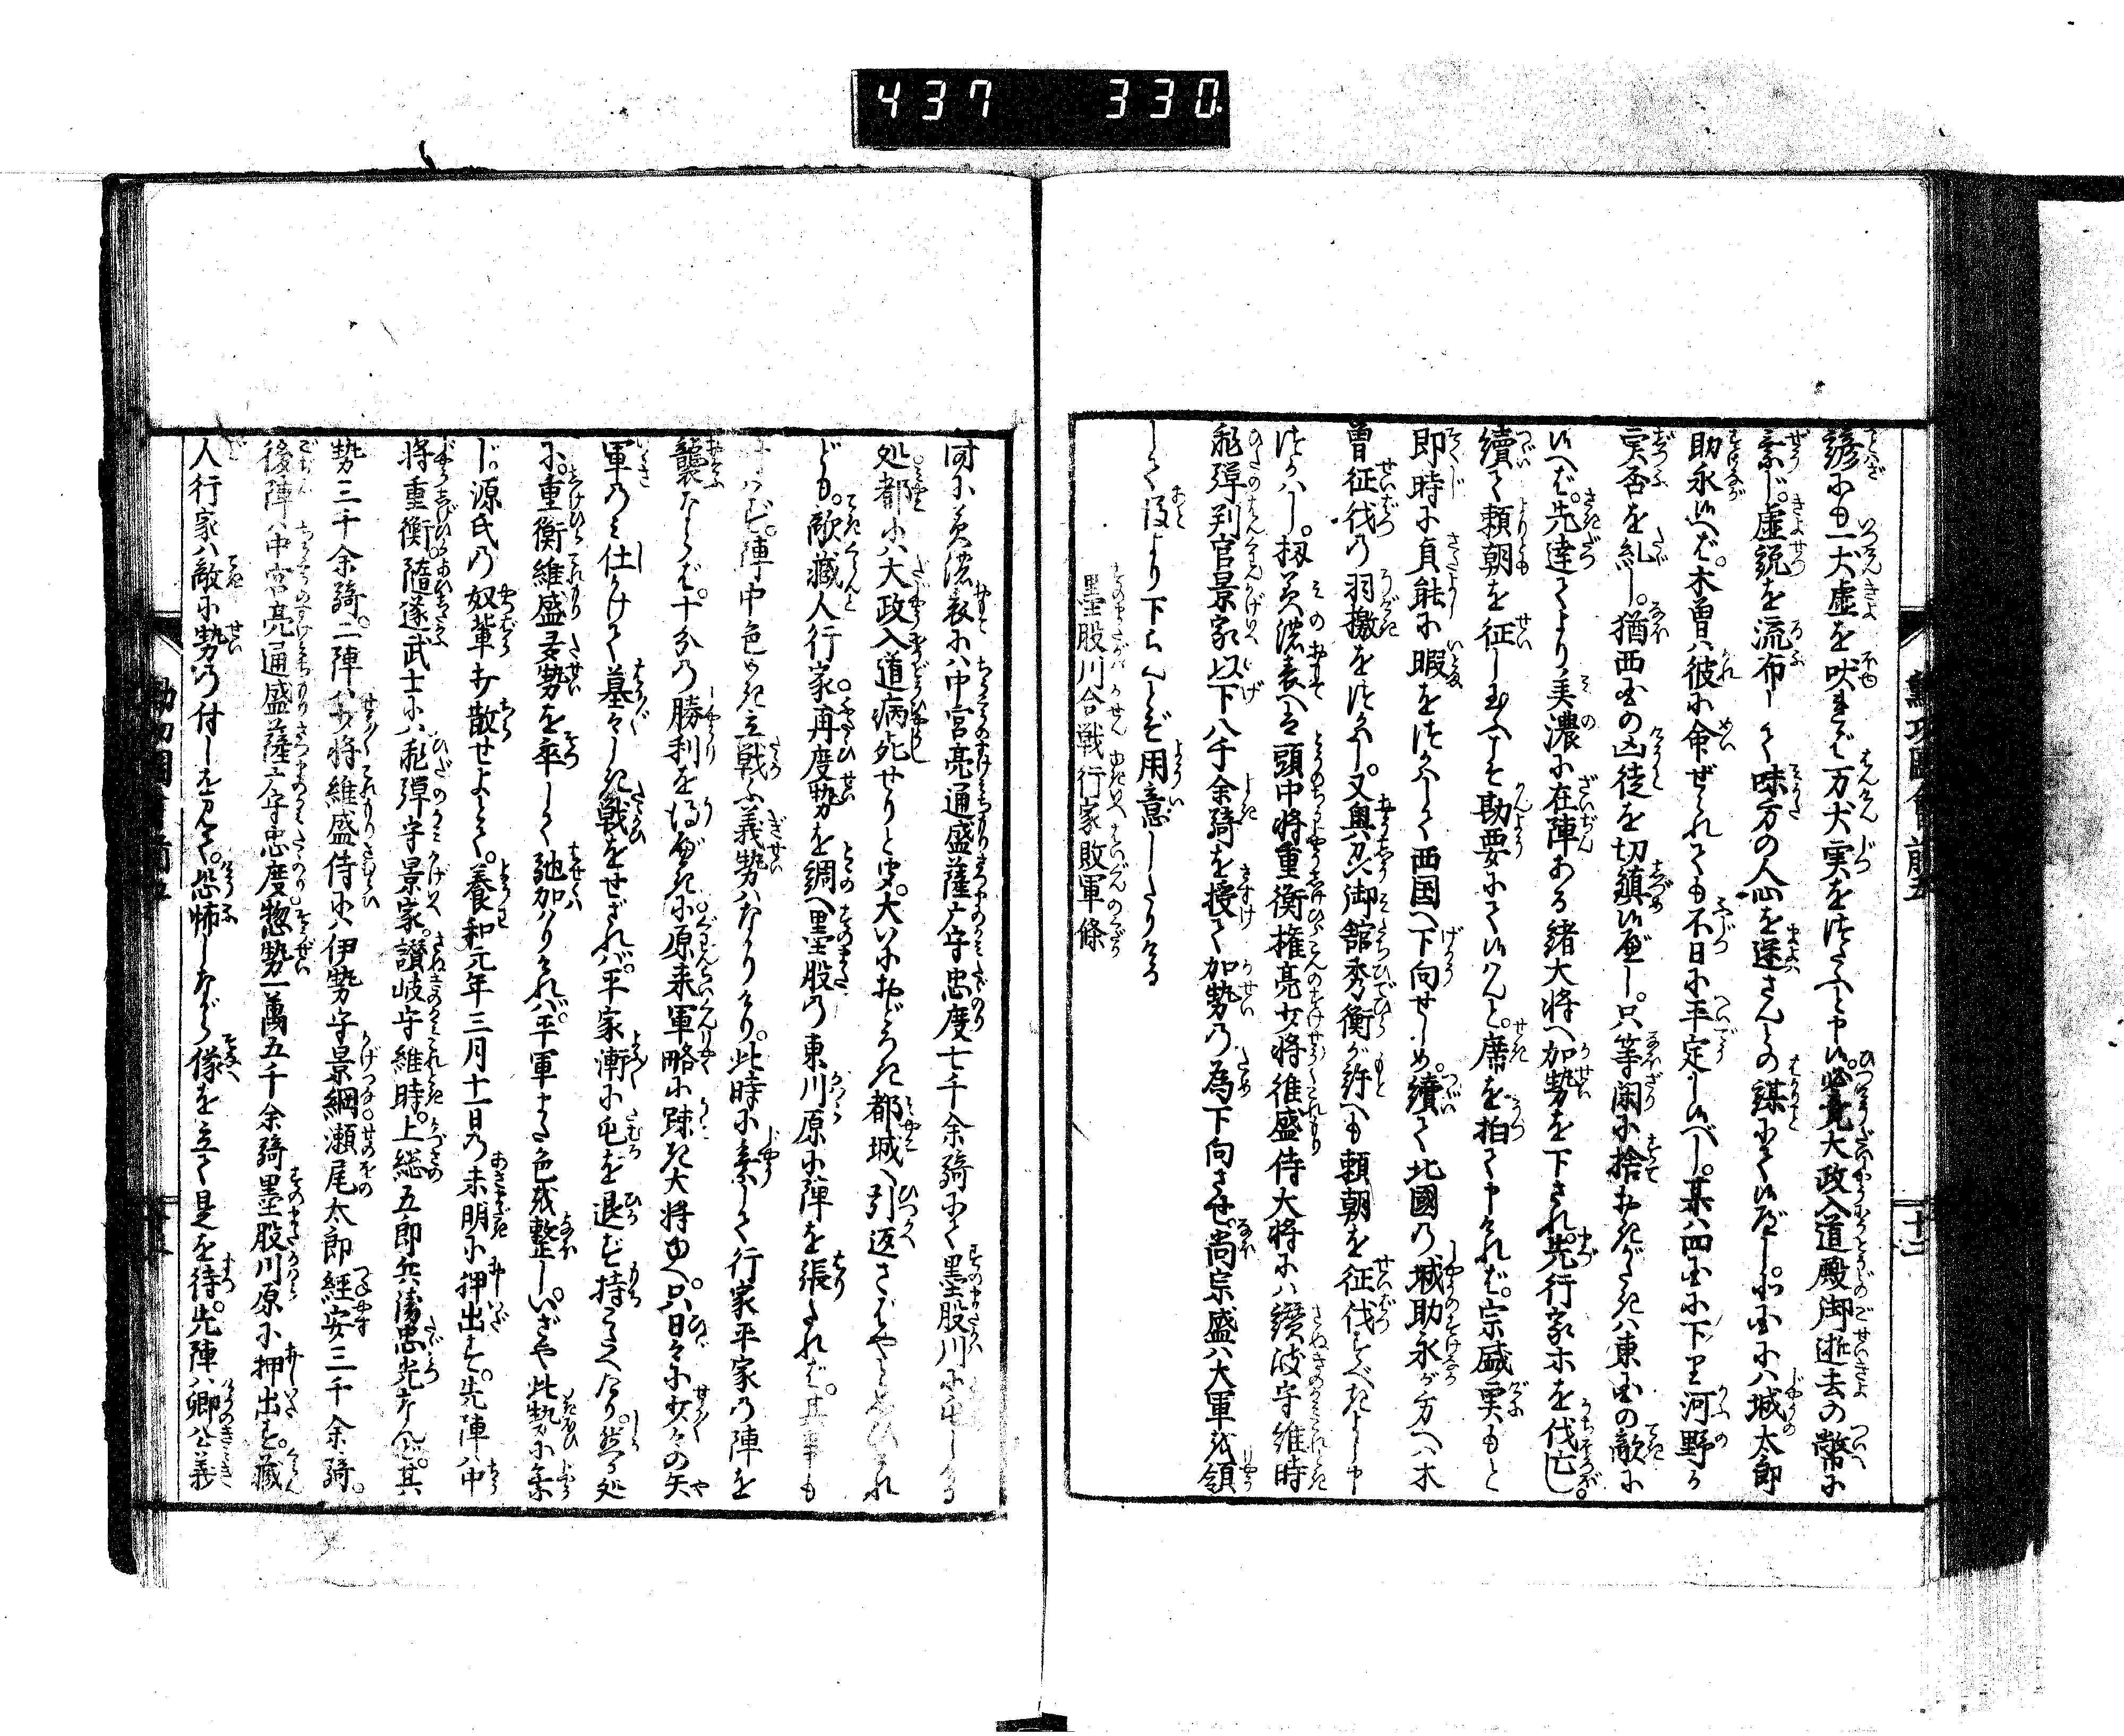 437 330
諺にも一犬虚を吠れば万犬実を伝ふと申候。必竟大政入道殿御逝去の幣に
乗じ。虚説を流布して味方の人心を迷さんとの謀にて候べし。北国には城太郎
助永候へば。木曽は彼に命ぜられても不日に平定し候べし。某は四国に下り河野が
実否を糺し。猶西国の凶徒を切鎮候べし。只等閑に捨おきがたきは東国の敵に
候へば。先達てより美濃に在陣ある緒大将へ加勢を下され。先行家ホを伐亡し。
續て頼朝を征し玉へしと勘要にて候はんと。席を拍て申けれは。宗盛実もと
即時に貞能に暇をつかはして西国へ下向せしめ。續て北國の城助永が方へ木
曽征伐の羽檄をつかはし。又奥州御舘秀衡が許へも頼朝を征伐すべきよし申
つかはし。扨美濃表へは頭中将重衡権亮少将維盛侍大将には讃波守維時
飛弾判官景家以下八千余騎を授て加勢の為下向させ。尚宗盛は大軍を領
して後より下らんとぞ用意したりける
墨股川合戦行家敗軍條
同に美濃表には中宮亮通盛薩广守忠度七千余騎にて墨股川に屯しける
処都には大政入道病死せりと聞。大いにおどろき都城へ引返さばやと思ひけれ
ども。敵藏人行家再度勢を綢へ墨股の東川原に陣を張たれば。其事も
ならず。陣中色めき立戦ふ義勢はなかりけり。此時に乗じて行家平家の陣を
襲ならば。十分の勝利を得べきに。原来軍略に踈き大将ゆへ。只日々に少々の矢
軍のみ仕かけて墓々しき戦をせざれば。平家漸に屯を退ず持こらへたり。然る処
に。重衡維盛多勢を卒して馳加はりければ。平軍すは色戎整し。いざや此勢に乗
じ。源氏の奴輩を打散せよとて。養和元年三月十一日の未明に押出す。先陣は中
将重衡。隨遂武士には飛弾守景家。讃岐守維時。上総五郎兵衛忠光なんど。其
勢三千余騎。二陣は少将維盛侍には伊勢守景綱。瀬尾太郎経安三千余騎。
後陣は中宮亮通盛薩广守忠度。惣勢一萬五千余騎墨股川原に押出す。藏
人行家は敵に勢の付しを見て。恐怖しながら備を立て是を待。先陣は卿公義